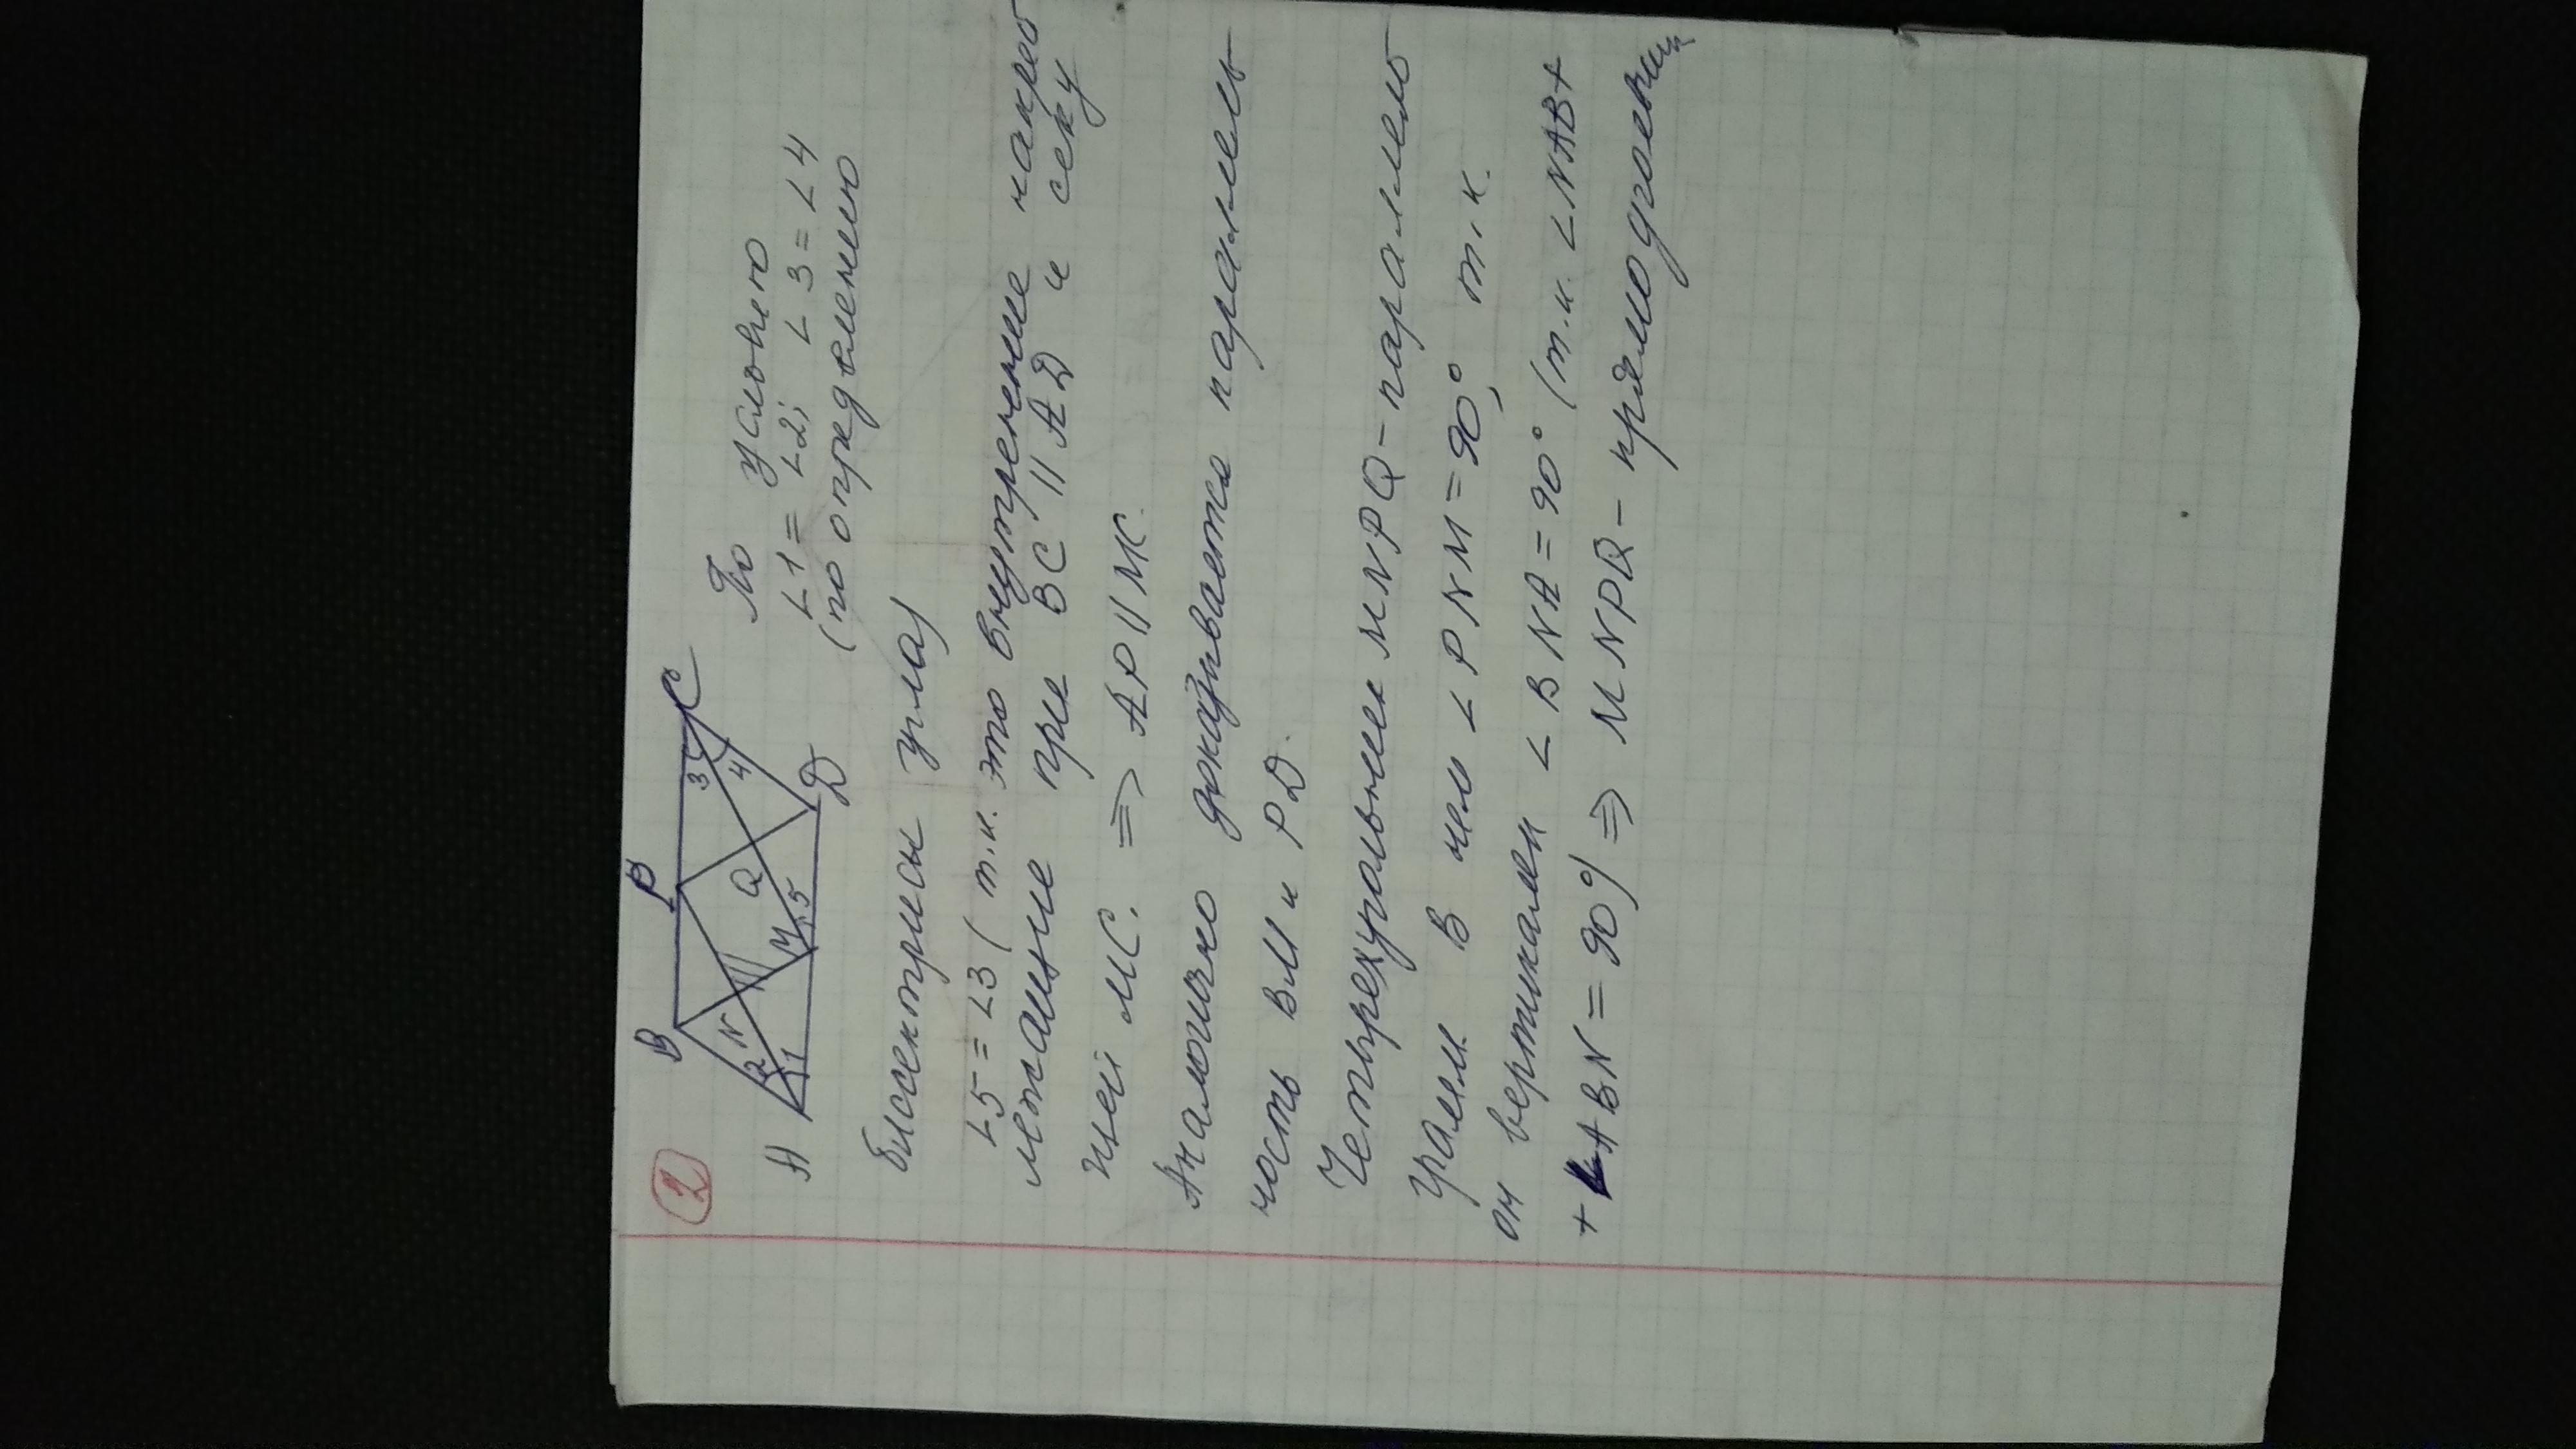 2
B P C
A N M Q D
1 2 3 4 5
По условию
∠1 = ∠2; ∠3 = ∠4
(по определению
биссектрисы угла)
∠5 = ∠3 (т.к. это внутренние накрео
лежащие при BC || AD и секу
щей MC. ⇒ AP || MC.
Аналогично доказывается параллель
ность BM и PD.
Четырехугольник MNPQ - паралело
грамм В нем ∠PNM = 90°, т.к.
он вертикален ∠BNA = 90° (т.к. ∠NAB +
+ ∠ABN = 90°) ⇒ MNPQ - прямоугольник